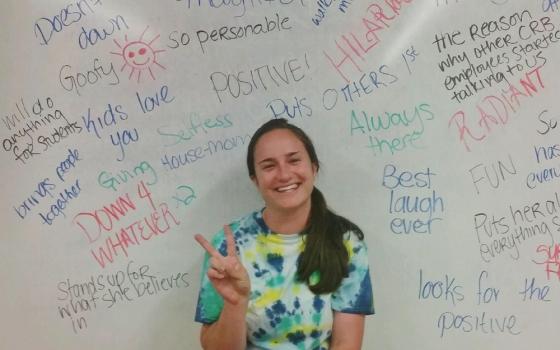 Doesn't
down
so personable
HILARIOUS
the reason
why other CRB
employees started
talking to us
Goofy
POSITIVE!
PUTS OTHERS 1st
RADIANT
will do
anything
for students
Kids love
you
Selfless
House-mom
Always
there
brings people
together
Giving
DOWN 4
WHATEVER x2
Best
laugh
ever
FUN
Puts her
everything
Stands up for
what she believes
in
looks for the
positive